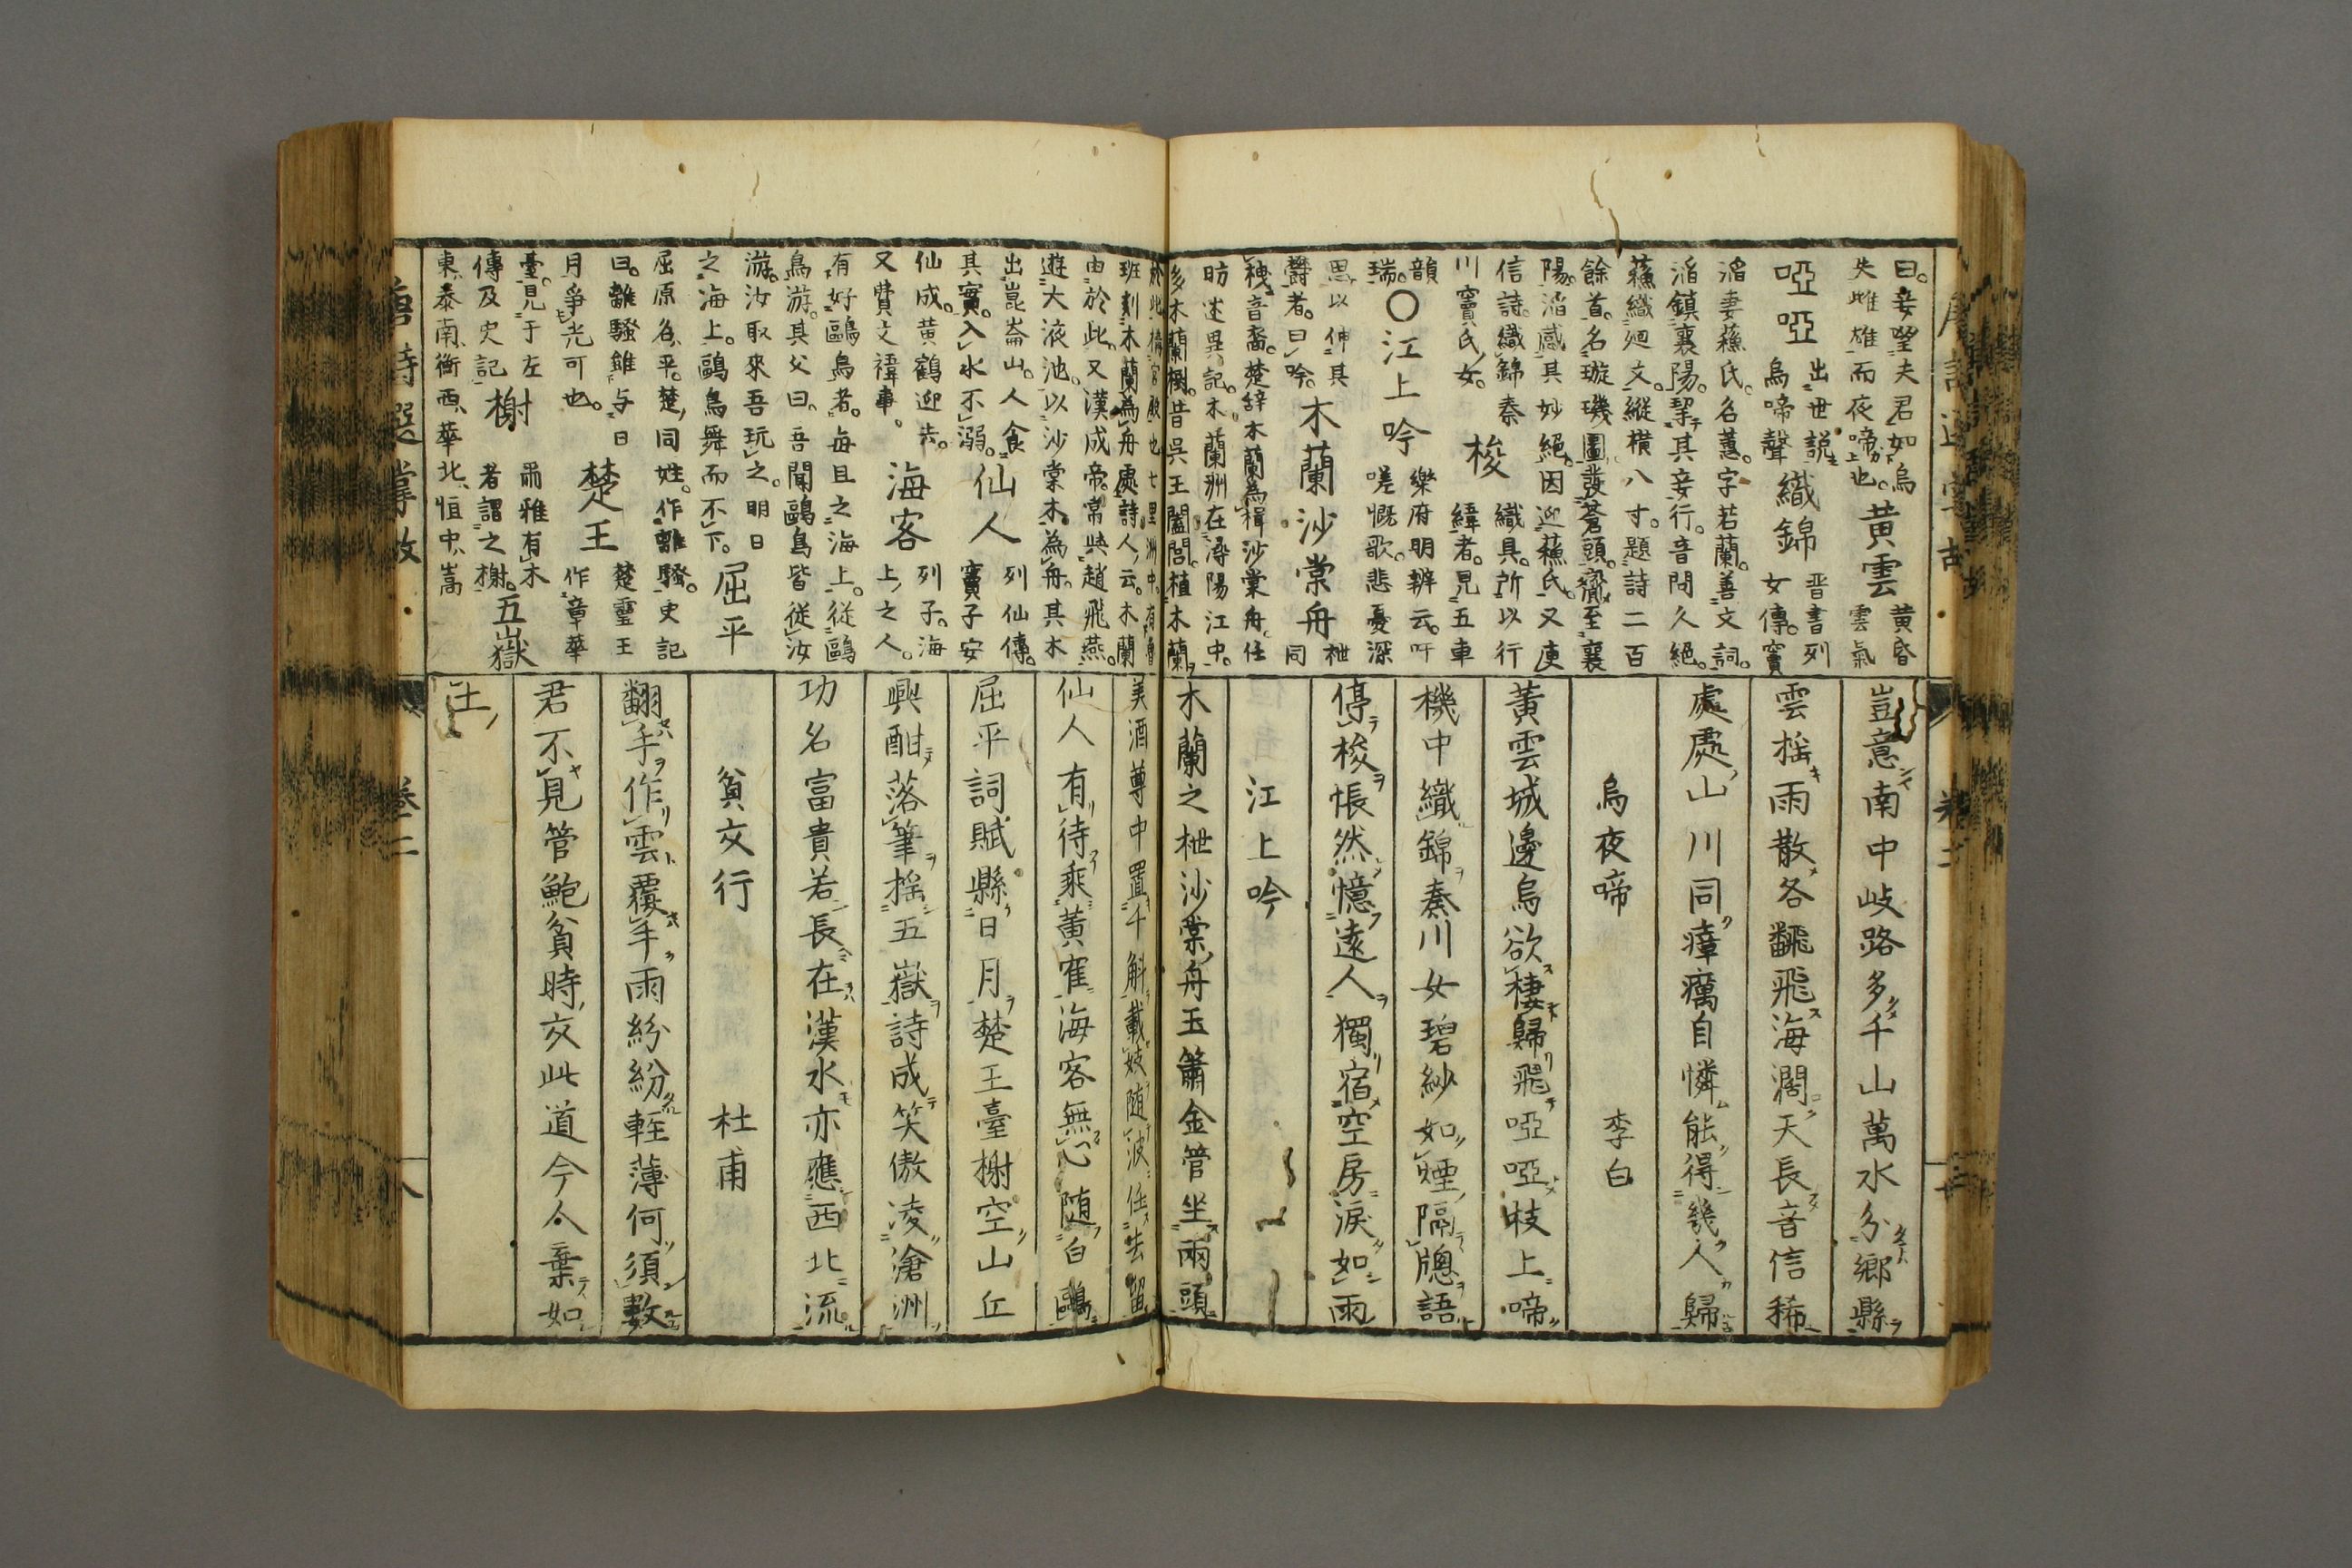 曰妾望夫君如烏
失雌雄而夜啼也
黄雲
黄昏
雲氣
啞啞
出世説
烏啼聲
織錦
晋書列
女傳竇
滔妻蘓氏名蕙字若蘭善文詞
滔鎮襄陽挈其妾行音問久絕
蘓織廻文縱横八寸題詩二百
餘首名璇璣圖發蒼頭齎至襄
陽滔感其妙絕因迎蘓氏又庾
信詩織錦秦
川竇氏女
梭
織具所以行
緯者見五車
韻
瑞
〇江上吟
樂府明辨云吁
嗟慨歌悲憂深
思以伸其
欝者曰吟
木蘭沙棠舟
枻
同
栧音裔楚辞木蘭為楫沙棠舟任
昉述異記木蘭洲在潯陽江中
多木蘭樹昔吳王闔閭植木蘭
於此
班刻木蘭為舟處詩人云木蘭
由於此又漢成帝常與趙飛燕
遊大液池以沙棠木為舟其木
出崑崙山人食
其實入水不溺
仙人
列仙傳
竇子安
仙成黄鶴迎歩
又費文禕事
海客
列子海
上之人
有好鷗鳥者每旦之海上從鷗
鳥游其父曰吾聞鷗鳥皆從汝
游汝取來吾玩之明日
之海上鷗鳥舞而不下
屈平
屈原名平楚同姓作離騷史記
曰離騷雖与日
月爭光可也
楚王
楚靈王
作章華
臺見于左
傳及史記
榭
爾雅有木
者謂之榭
五嶽
東泰南衡西華北恒中嵩
豈意南中岐路多千山萬水分鄉縣
雲揺雨散各飜飛海濶天長音信稀
處處山川同瘴癘自憐能得幾人歸
烏夜啼 李白
黄雲城邊烏欲棲歸飛啞啞枝上啼
機中織錦秦川女碧紗如煙隔牕語
停梭悵然憶遠人獨宿空房淚如雨
江上吟
木蘭之枻沙棠舟玉簫金管坐兩頭
美酒尊中置千斛載妓随波任去留
仙人有待乘黄隺海客無心随白鷗
屈平詞賦縣日月楚王臺榭空山丘
興酣落筆揺五嶽詩成笑傲凌滄洲
功名富貴若長在漢水亦應西北流
貧交行 杜甫
翻手作雲覆手雨紛紛輊薄何須數
君不見管鮑貧時交此道今人棄如
土
唐詩選掌故
卷二
八